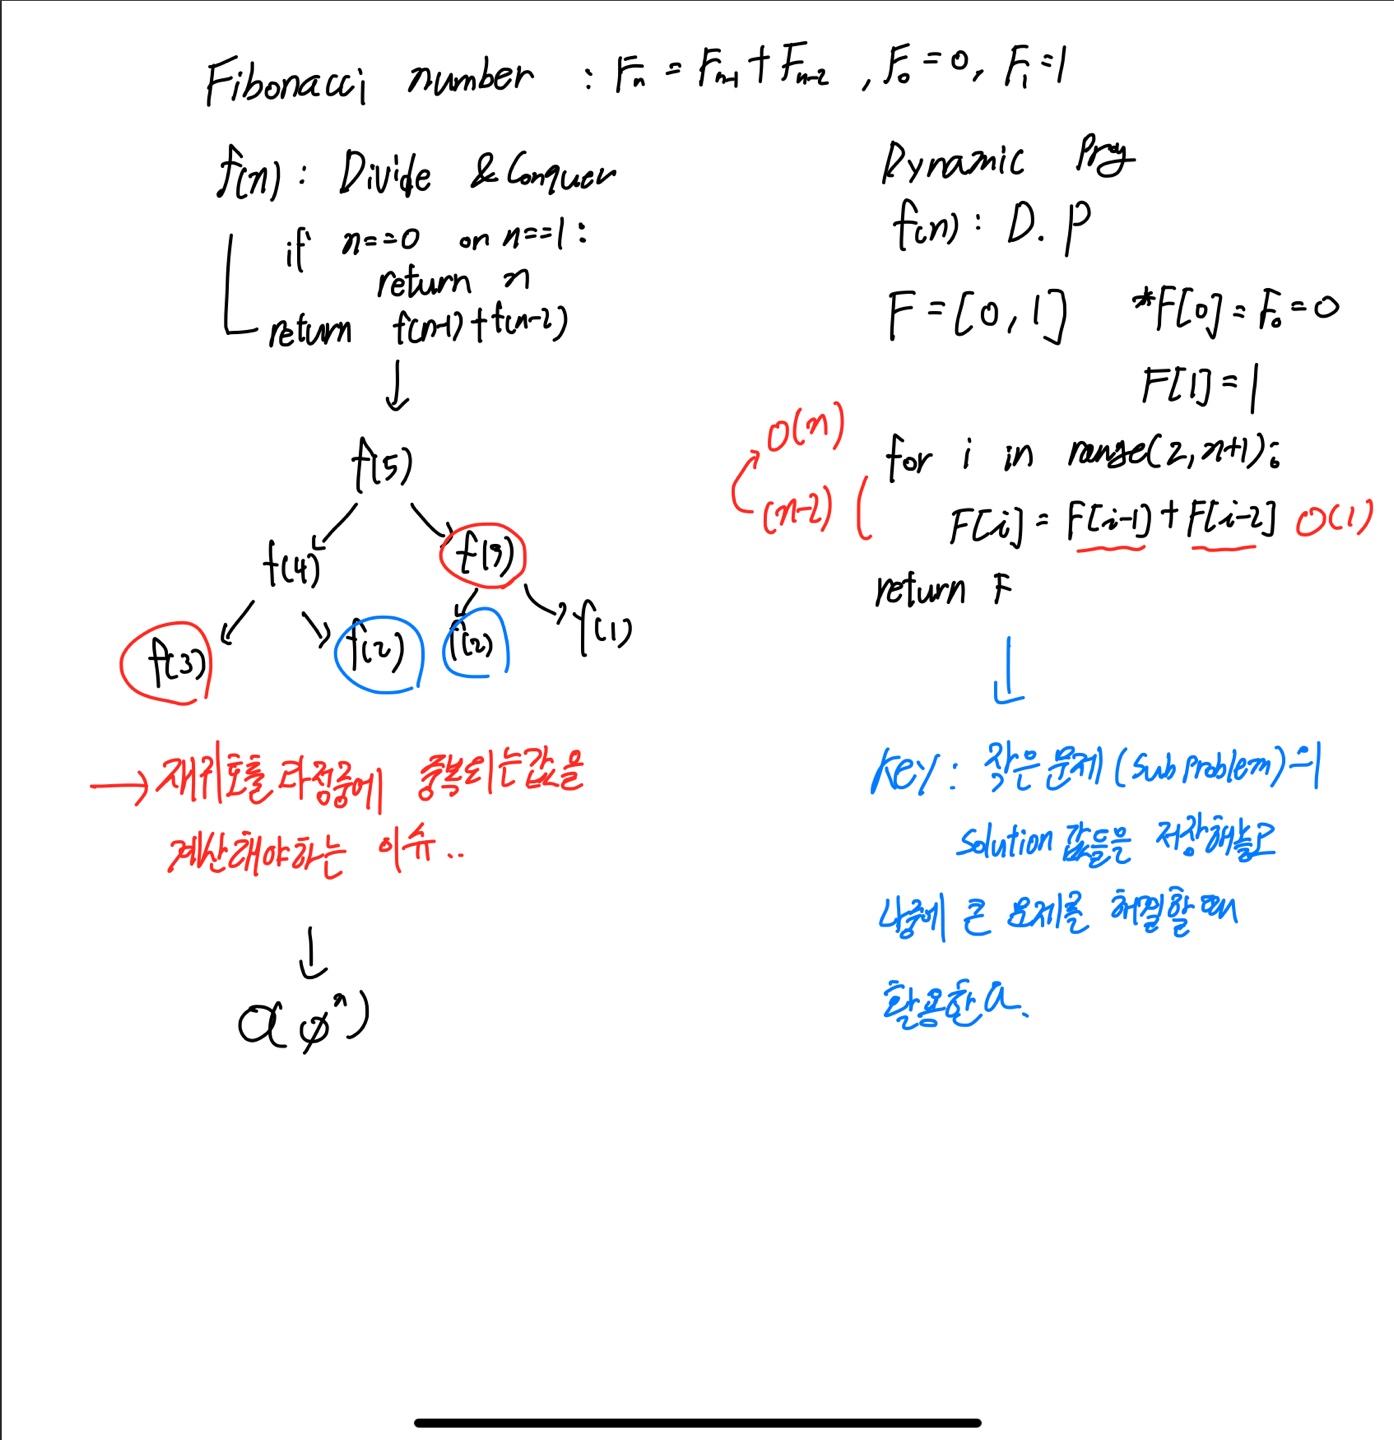 Fibonacci number : Fn = Fn-1 + Fn-2 , F0 = 0, F1 = 1
f(n) : Divide & Conquer
if n==0 or n==1 :
return n
return f(n-1) + f(n-2)
f(5)
f(4) f(3)
f(3) f(2) f(2) f(1)
→ 재귀호출 과정중에 중복되는값을
계산해야하는 이슈..
O(φⁿ)
Dynamic Prog
f(n) : D.P
F = [0, 1] *F[0] = F0 = 0
F[1] = 1
O(n)
for i in range(2, n+1):
(n-2)
F[i] = F[i-1] + F[i-2] O(1)
return F
Key : 작은 문제 (Sub Problem)의
Solution 값들을 저장해놓고
나중에 큰 문제를 해결할 때
활용한다.